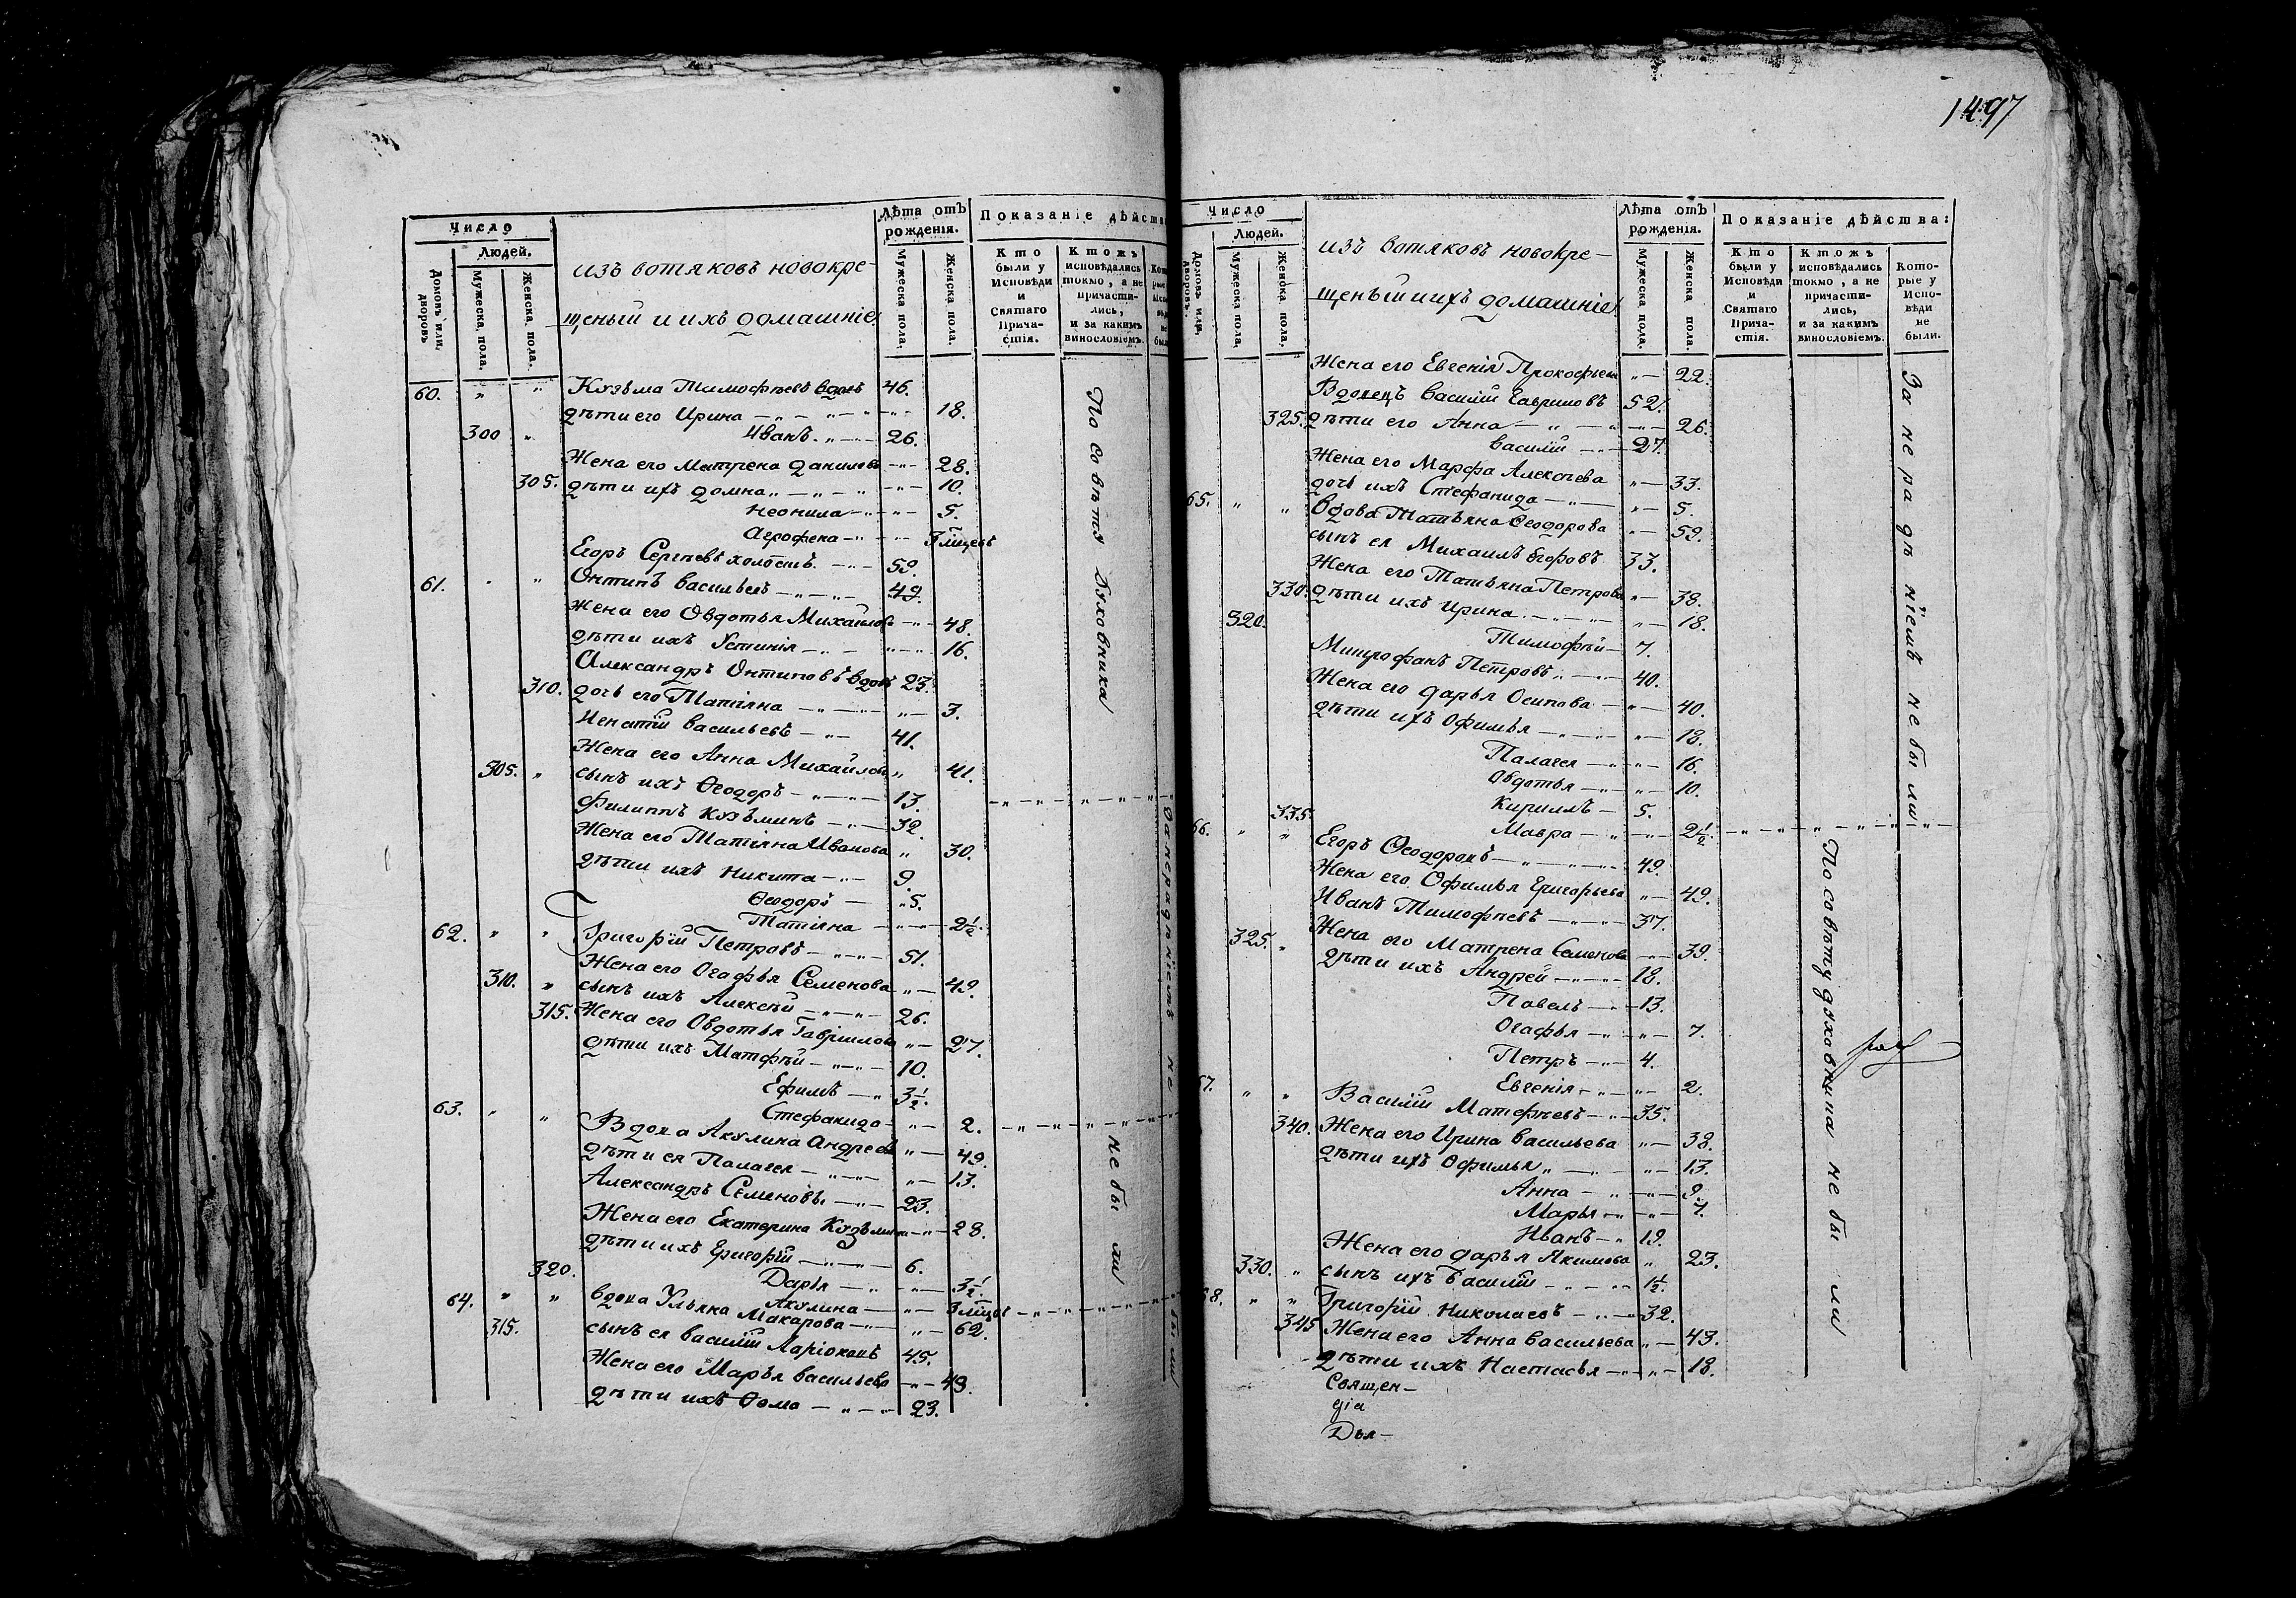 1497
Число
Людей.
Домовъ или дворовъ
Мужеска пола.
Женска пола.
изъ вотяковъ новокре-
щеный и ихъ домашніе
Лѣта отъ рожденія.
Мужеска пола.
Женска пола.
Показаніе дѣйства
Кто были у Исповѣди и Святаго Прича-стія.
Ктожъ исповѣдались токмо, а не причасти-лись, и за какимъ винословіемъ.
60. " " Козьма Тимофѣевъ вдовъ 46.
дѣти его Ирина 18.
300 " Иванъ 26.
Жена его Матрена Данилова 28.
305. дѣти ихъ Домна 10.
Неонила 5.
Агрофена
Егоръ Сергѣевъ холостъ 59.
61. " " Онтипъ Васильевъ 49.
Жена его Овдотья Михайлова 48.
дѣти ихъ Устинія 16.
Александръ Онтиповъ вдовъ 23.
310. дочь его Татіяна 3.
Игнатій Васильевъ 41.
Жена его Анна Михайлова 41.
305. " сынъ ихъ Ѳеодоръ 13.
Филиппъ Козьминъ 32.
Жена его Татіяна Иванова 30.
дѣти ихъ Никита 9.
Ѳеодоръ 5.
Татіяна 2½.
62. " " Григорій Петровъ 51.
Жена его Огафья Семенова 49.
310. " сынъ ихъ Алексѣй 26.
315. Жена его Овдотья Гавриилова 27.
дѣти ихъ Матфѣй 10.
Ефимъ 3½.
Стефанида 2.
63. " " Вдова Акулина Андреева 49.
дѣти ея Палагея 13.
Александръ Семеновъ 23.
Жена его Екатерина Козьмина 28.
дѣти ихъ Григорій 6.
320. Дарья 3½.
Акулина
64. " " вдова Ульяна Макарова 62.
315. сынъ ея Василій Ларіоновъ 45.
Жена его Марья Васильева 49.
дѣти ихъ Ѳома 23.
По совѣту Духовника
не были
За нерадѣніемъ не были
Число
Людей.
Домовъ или дворовъ.
Мужеска пола.
Женска пола.
изъ вотяковъ новокре-
щеный и ихъ домашніе
Лѣта отъ рожденія.
Мужеска пола.
Женска пола.
Показаніе дѣйства:
Кто были у Исповѣди и Святаго Прича-стія.
Ктожъ исповѣдались токмо, а не причасти-лись, и за какимъ винословіемъ.
Кото-рые у Испо-вѣди не были.
Жена его Евгенія Прокофьева 22.
Вдовецъ Василій Гавриловъ 52.
325. дѣти его Анна 26.
Василій 27.
Жена его Марфа Алексѣева 33.
дочь ихъ Стефанида 5.
65. " " Вдова Татьяна Ѳеодорова 59.
сынъ ея Михаилъ Егоровъ 33.
Жена его Татьяна Петрова 38.
330. дѣти ихъ Ирина 18.
320. Тимофѣй 7.
Митрофанъ Петровъ 40.
Жена его Дарья Осипова 40.
дѣти ихъ Офимья 18.
Палагея 16.
Овдотья 10.
Кириллъ 5.
335. Мавра 2½.
66. " " Егоръ Ѳеодоровъ 49.
Жена его Офимья Григорьева 49.
Иванъ Тимофѣевъ 37.
Жена его Матрена Семенова 39.
325. " дѣти ихъ Андрей 18.
Павелъ 13.
Огафья 7.
Петръ 4.
Евгенія 2.
67. " " Василій Матфѣевъ 35.
340. Жена его Ирина Васильева 38.
дѣти ихъ Офимья 13.
Анна 9.
Марья 7.
Иванъ 19.
Жена его Дарья Якимова 23.
330. " сынъ ихъ Василій 1½.
68. " " Григорій Николаевъ 32.
345 Жена его Анна Васильева 43.
дѣти ихъ Настасья 18.
За нерадѣніемъ не были
По совѣту духовника не были
Священ-
Дья-